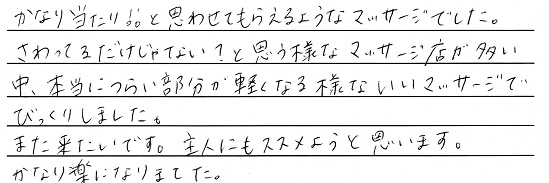 かなり当たり!!と思わせてもらえるようなマッサージでした。
さわってるだけじゃない?と思う様なマッサージ店が多い
中、本当につらい部分が軽くなる様ないいマッサージで
びっくりしました。
また来たいです。主人にもススメようと思います。
かなり楽になりました。